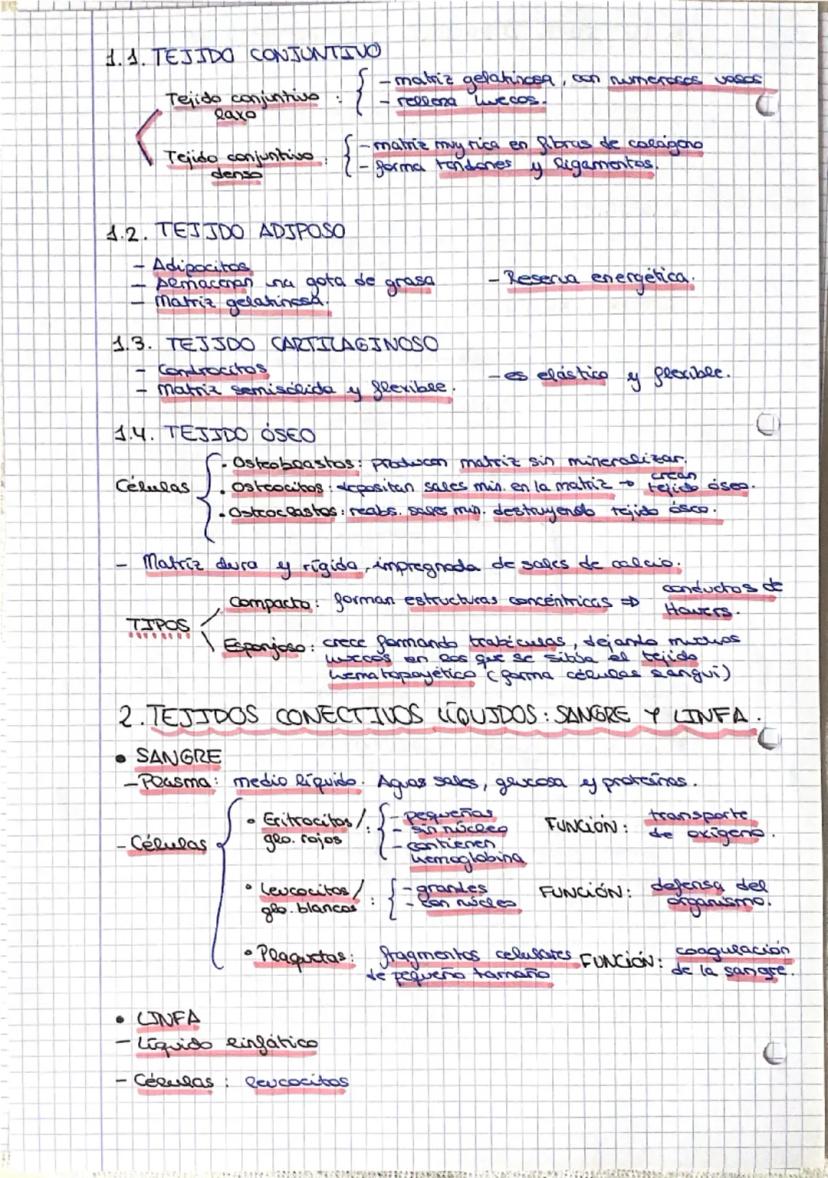 1.1. TEJIDO CONJUNTIVO
Tejido conjuntivo laxo : - matriz gelatinosa, con numerosos vasos
- rellena huecos.
Tejido conjuntivo denso : - matriz muy rica en fibras de colágeno
- forma tendones y ligamentos.
1.2. TEJIDO ADIPOSO
- Adipocitos
- Almacenan una gota de grasa
- Matriz gelatinosa.
- Reserva energética.
1.3. TEJIDO CARTILAGINOSO
- Condrocitos
- Matriz semisólida y flexible.
- es elástico y flexible.
1.4. TEJIDO ÓSEO
Células
· Osteoblastos: producen matriz sin mineralizar.
· Osteocitos: depositan sales min. en la matriz → crean tejido óseo.
· Osteoclastos: reabs. sales min. destruyendo tejido óseo.
- Matriz dura y rígida, impregnada de sales de calcio.
TIPOS
Compacto: forman estructuras concéntricas ⇒ conductos de Havers.
Esponjoso: crece formando trabéculas, dejando muchos
huecos en los que se sitúa el tejido
hematopoyético (forma células sangui)
2. TEJIDOS CONECTIVOS LÍQUIDOS: SANGRE Y LINFA.
• SANGRE
- Plasma: medio líquido. Agua, sales, glucosa y proteínas.
- Células
• Eritrocitos/ glo. rojos :
- pequeños
- sin núcleo
- contienen hemoglobina
FUNCIÓN: transporte de oxígeno.
• Leucocitos/ glo. blancos :
- grandes
- con núcleo
FUNCIÓN: defensa del organismo.
• Plaquetas: fragmentos celulares de pequeño tamaño
FUNCIÓN: coagulación de la sangre.
• LINFA
- Líquido linfático
- Células : leucocitos